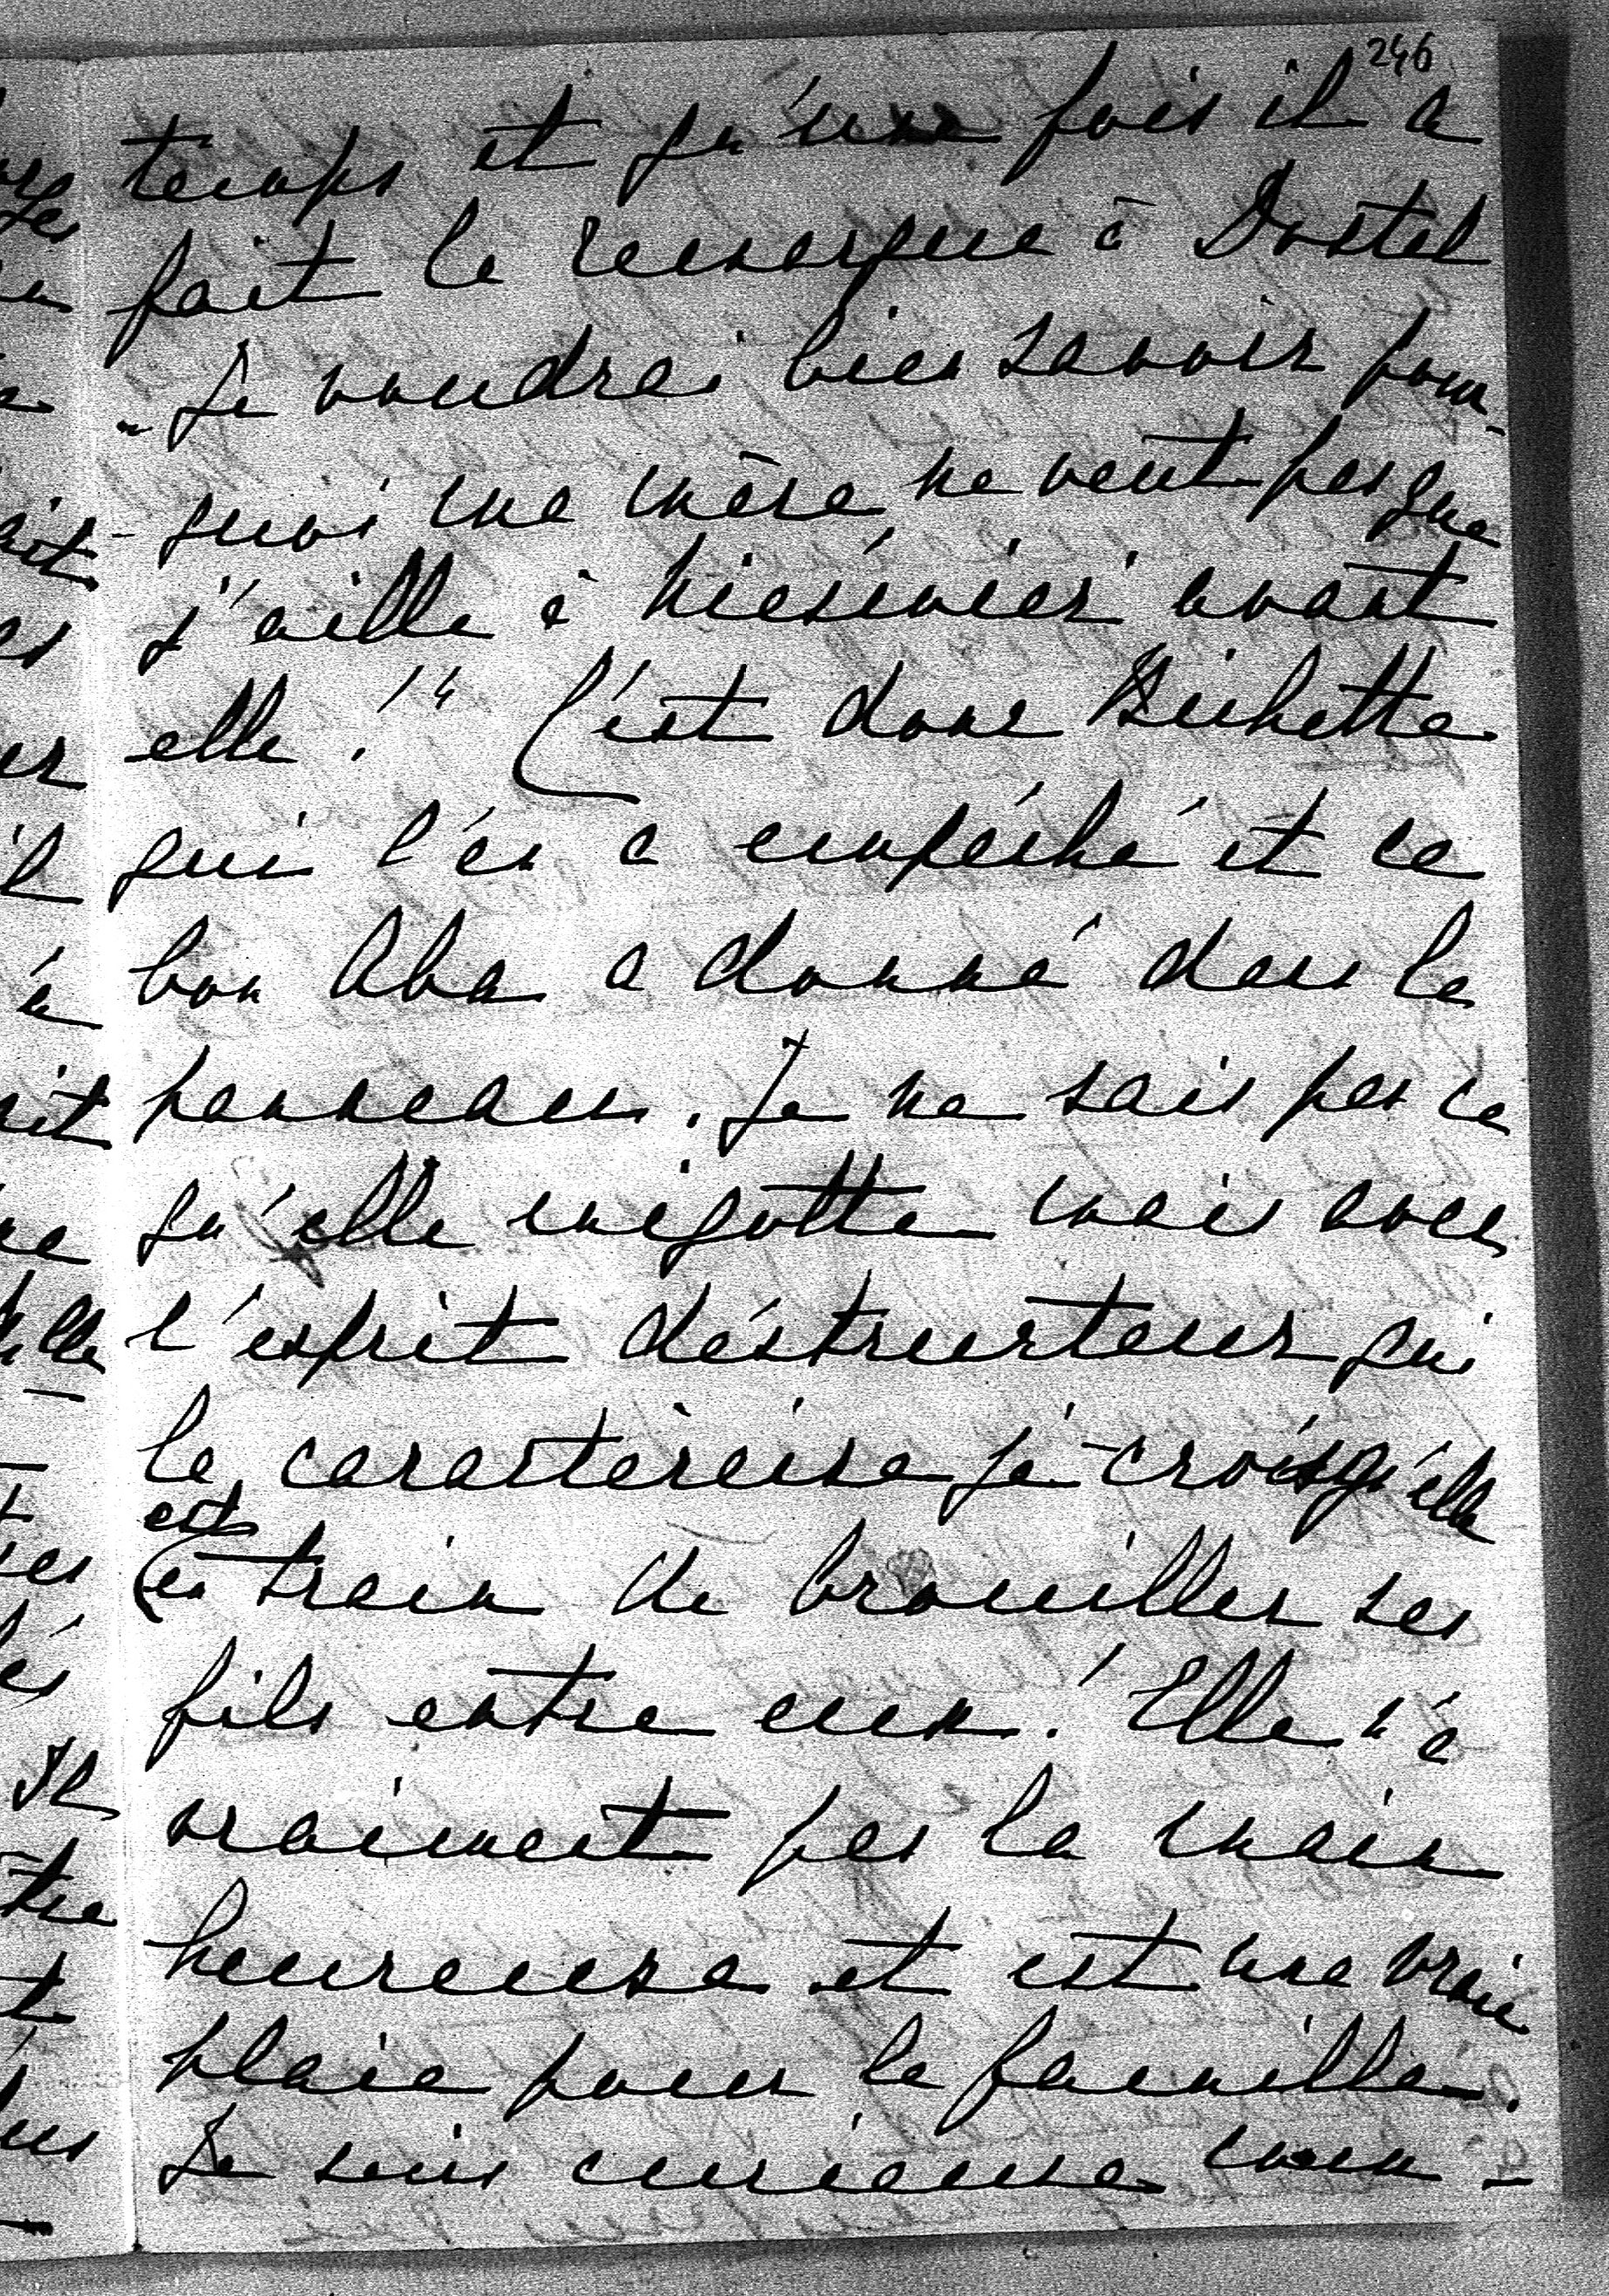 246
temps et qu'une fois il a
fait la remarque à Dostal
„Je voudrai bien savoir pour-
-quoi ma mère ne veut pas que
j'aille à Niesvier avant
elle!" C'est donc Bichette
qui l'en a empêché et ce
bon Aba a donné dans le
panneau. Je ne sais pas ce
qu'elle migotte mais avec
l'esprit déstructeur qui
la caractèreise je crois qu'elle
est
en train de brouiller ses
fils entre eux! Elle n'a
vraiment pas la main
heureuse et est une vraie
plaie pour la famille.
Je suis curieuse com-